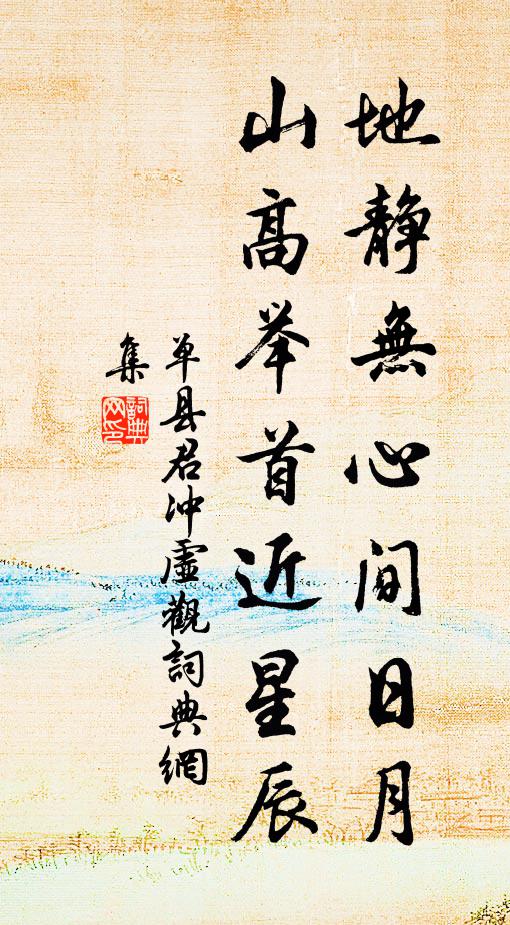 地静無心间日月
山高举首近星辰
单县君冲虚觀詞典網
集
詞典
网印